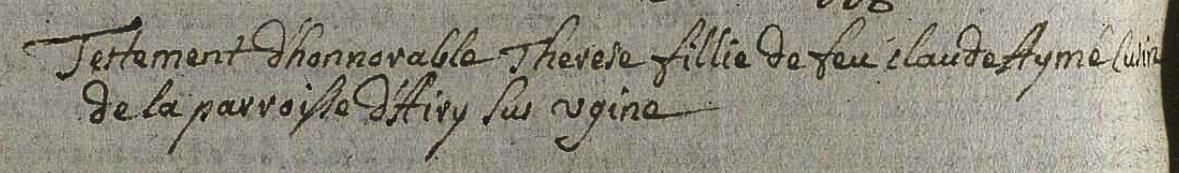 Testement d'honnorable Therese fillie de feu claude Aymé Cusin
de la parroisse d'Hiry sus ugine